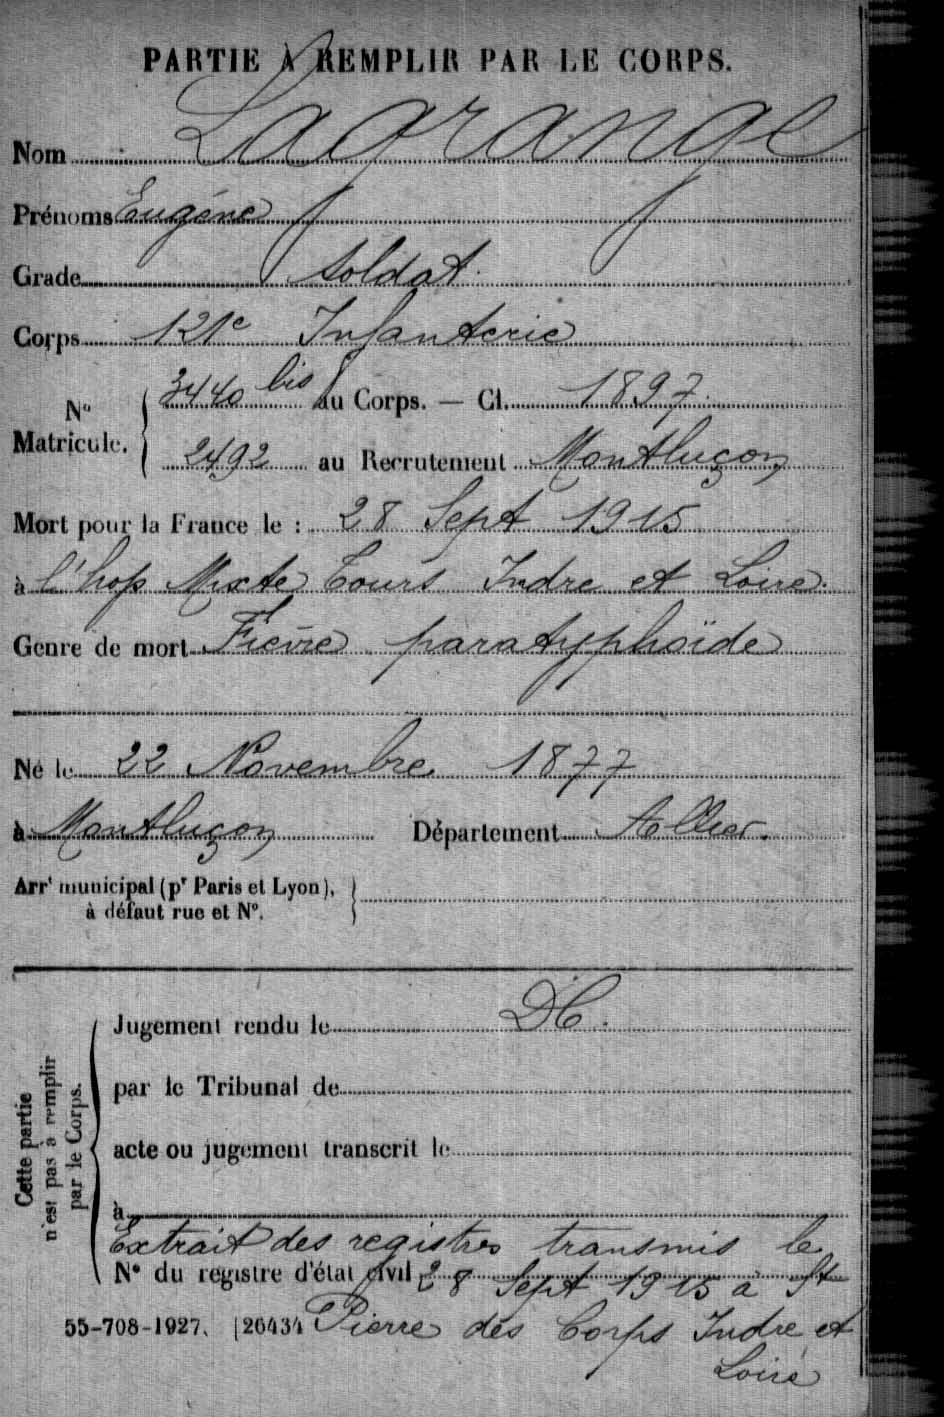 PARTIE À REMPLIR PAR LE CORPS.
Nom Lagrange
Prénoms Eugène
Grade Soldat
Corps 121e Infanterie
3440 bis au Corps. — Cl. 1897
N° Matricule.
2492 au Recrutement Montluçon
Mort pour la France le : 28 Sept 1915
à l'hop Mixte Tours Indre et Loire.
Genre de mort Fièvre paratyphoïde
Né le 22 Novembre 1877
à Montluçon Département Allier.
Arrt municipal (pr Paris et Lyon),
à défaut rue et N°.
Cette partie
n'est pas à remplir
par le Corps.
Jugement rendu le DC.
par le Tribunal de
acte ou jugement transcrit le
à
Extrait des registres transmis le
N° du registre d'état civil 28 Sept 1915 à St
55-708-1927. [26434 Pierre des Corps Indre et
Loire